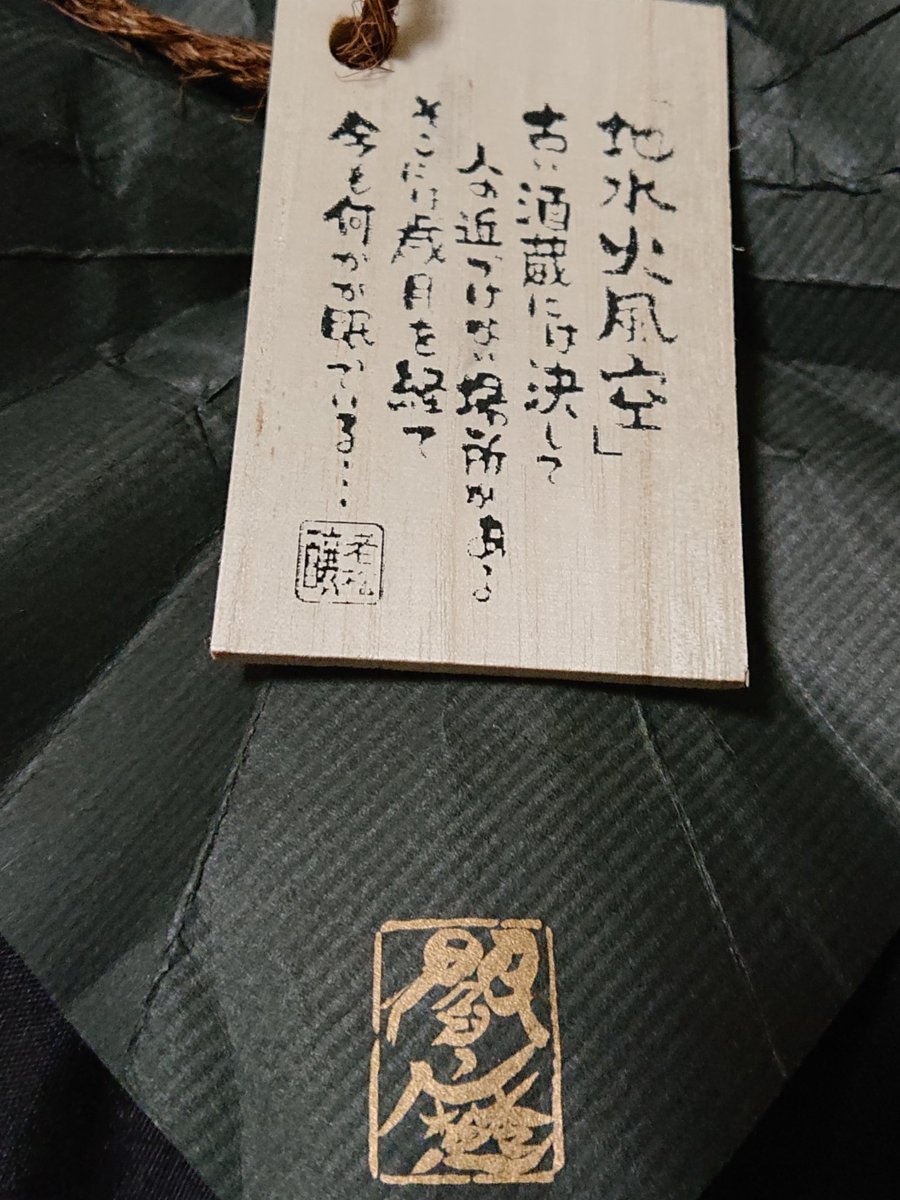 地水火風空」
古い酒蔵には決して
人の近づけない場所がある
そこには歳月を経て
今も何かが眠っている…
老松
閻魔